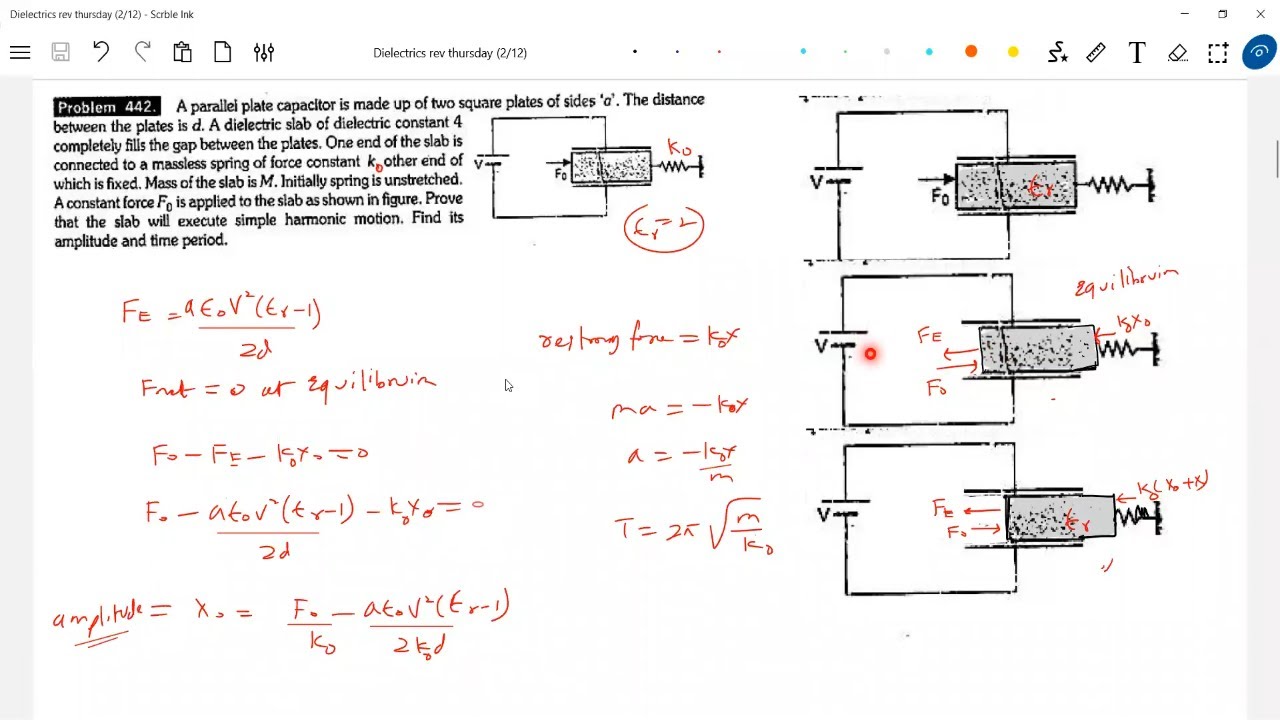 Dielectrics rev thursday (2/12) - Scrble Ink
Dielectrics rev thursday (2/12)
T
Problem 442. A parallel plate capacitor is made up of two square plates of sides 'a'. The distance
between the plates is d. A dielectric slab of dielectric constant 4
completely fills the gap between the plates. One end of the slab is
connected to a massless spring of force constant k₀ other end of
which is fixed. Mass of the slab is M. Initially spring is unstretched.
A constant force F₀ is applied to the slab as shown in figure. Prove
that the slab will execute simple harmonic motion. Find its
amplitude and time period.
V
F₀
K₀
(ϵr = 2)
F_E = aϵ₀V²(ϵr-1)/2d
Fnet = 0 at equilibrium
F₀ - F_E - k₀x₀ = 0
F₀ - aϵ₀V²(ϵr-1)/2d - k₀x₀ = 0
amplitude = x₀ = F₀/k₀ - aϵ₀V²(ϵr-1)/2k₀d
restoring force = k₀x
ma = -k₀x
a = -k₀x/m
T = 2π√(m/k₀)
V
F₀
ϵr
Equilibrium
V
F_E
F₀
k₀x₀
V
F_E
F₀
ϵr
k₀(x₀+x)